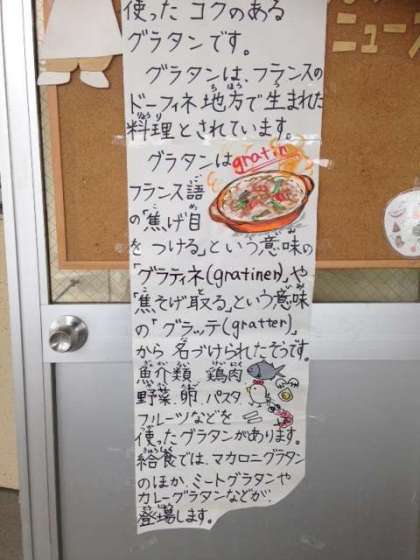 使った コクのある
グラタンです。
グラタンは、フランスの
ドーフィネ地方で生まれた
料理とされています。
グラタンは gratin
フランス語
の「焦げ目
をつける」という意味の
「グラティネ(gratiner)」や
「焦そげ取る」という意味
の「グラッテ(gratter)」
から名づけられたそうです。
魚介類 鶏肉
野菜、卵、パスタ
フルーツなどを
使ったグラタンがあります。
給食では、マカロニグラタン
のほか、ミートグラタンや
カレーグラタンなどが、
登場します。
ニュース